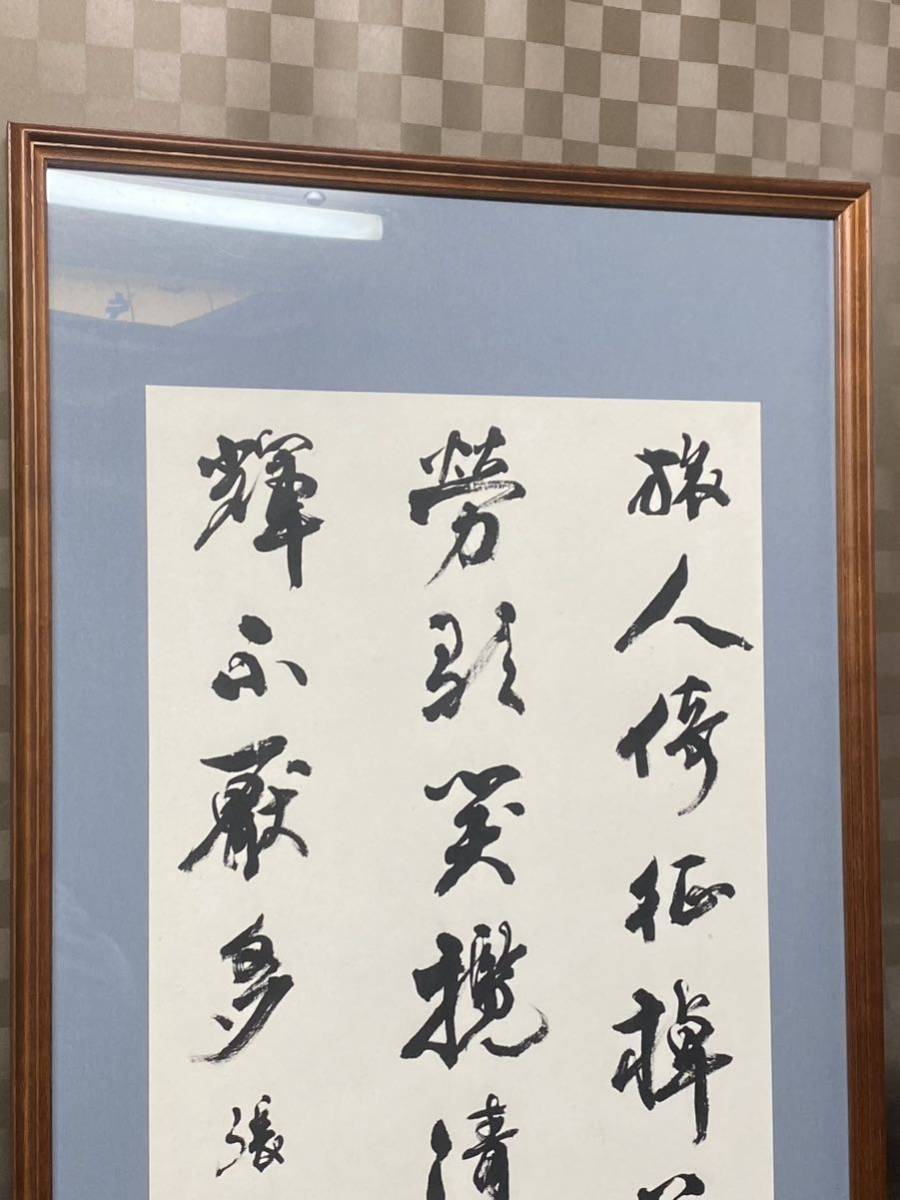 旅人倚征棹
勞歌笑攬清
輝不厭多 張